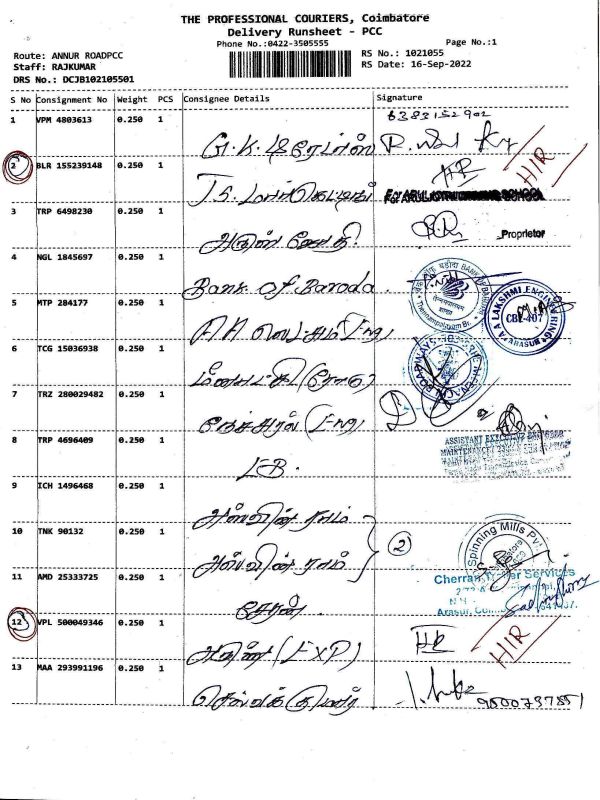 THE PROFESSIONAL COURIERS, Coimbatore
Delivery Runsheet - PCC
Phone No.:0422-3505555
Page No.:1
Route: ANNUR ROADPCC
RS No.: 1021055
Staff: RAJKUMAR
RS Date: 16-Sep-2022
DRS No.: DCJB102105501
S No Consignment No Weight PCS Consignee Details Signature
1 VPM 4803613 0.250 1 G.K. டிரேடர்ஸ் 6383152902
2 BLR 155239148 0.250 1 J.S. மார்கெட்டிங் HIR
3 TRP 6498230 0.250 1 அருள் ஜோதி Proprietor
4 NGL 1845697 0.250 1 Bank of Baroda
5 MTP 284177 0.250 1 A A லட்சுமி Eng A A LAKSHMI ENGINEERING CBE-407 ARASUR
6 TCG 15036938 0.250 1 மீனாட்சி (ரோடு)
7 TRZ 280029482 0.250 1 (Eng)
8 TRP 4696409 0.250 1 EB. ASSISTANT EXECUTIVE ENGINEER
9 ICH 1496468 0.250 1 அஸ்வின் ராம்
10 TNK 90132 0.250 1 அஸ்வின் ராம் 2 Spinning Mills Pvt
11 AMD 25333725 0.250 1 சேரன் Services
12 VPL 500049346 0.250 1 அருண் (EXP) HIR
13 MAA 293991196 0.250 1 செல்வக்குமார் 9500737851